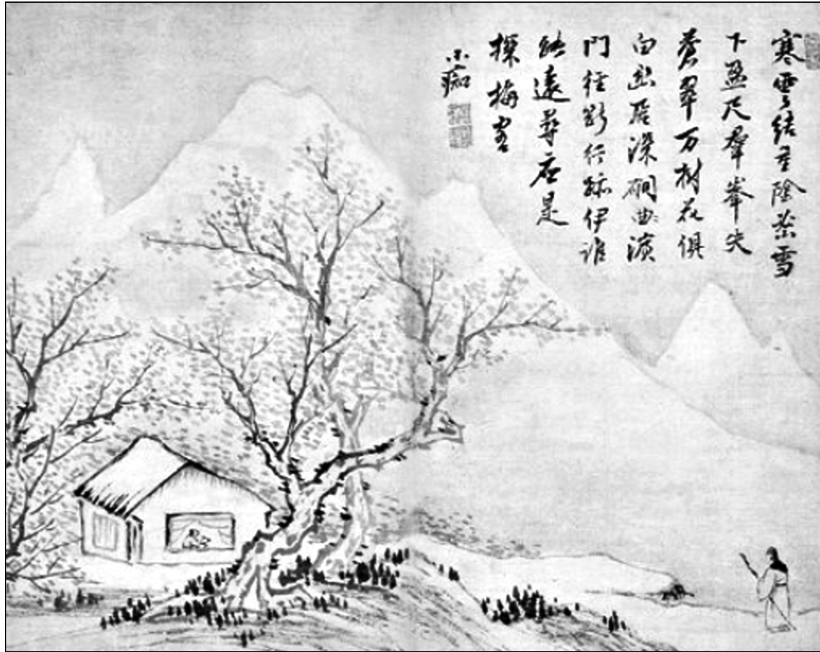 寒雲結重陰密雪
下盈尺羣峯失
蒼翠万樹花俱
白幽居深磵曲濱
門徑斷行跡伊誰
能遠尋應是
探梅客
小痴